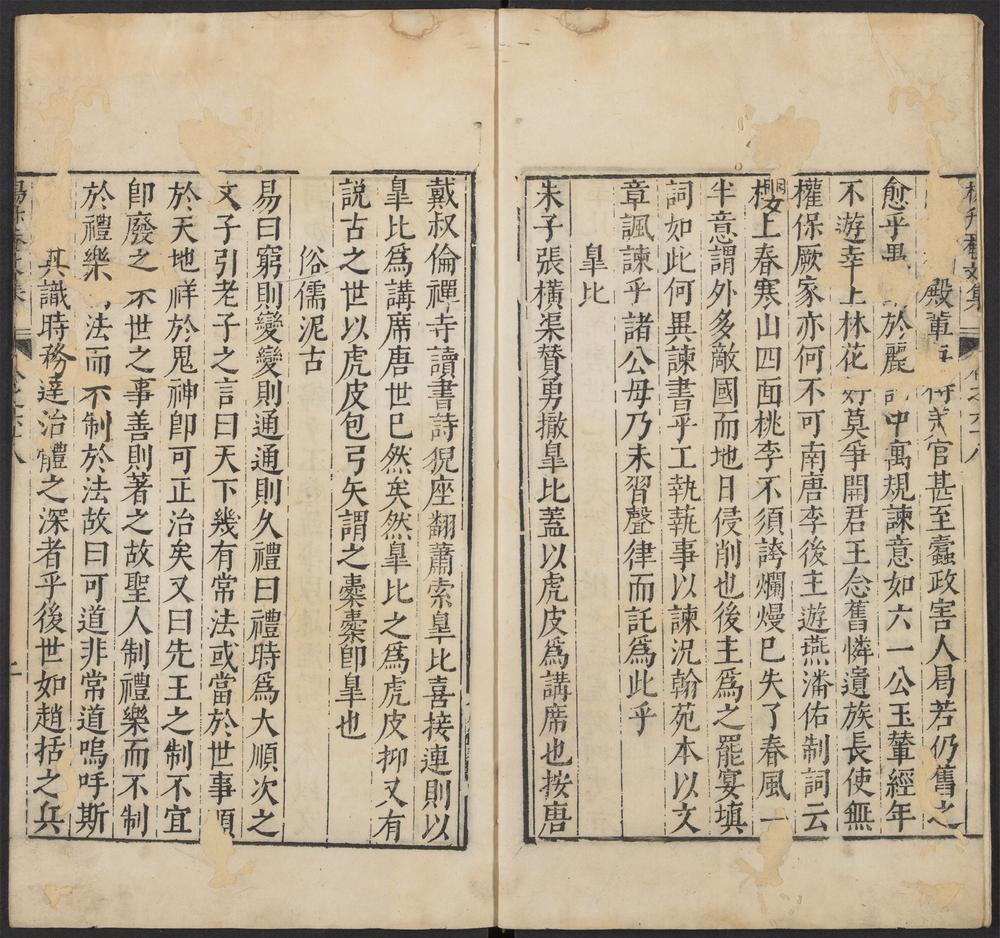 楊升菴文集 卷之六十八
殿輦 何 官甚至蠹政害人曷若仍舊之
愈乎畢 於麗 中寓規諫意如六一公玉輦經年
不遊幸上林花 好莫爭開君王念舊憐遺族長使無
權保厥家亦何不可南唐李後主遊燕潘佑制詞云
樓上春寒山四面桃李不須誇爛熳已失了春風一
半意謂外多敵國而地日侵削也後主爲之罷宴填
詞如此何異諫書乎工執執事以諫況翰苑本以文
章諷諫乎諸公毋乃未習聲律而託爲此乎
皐比
朱子張橫渠贊勇撤皐比蓋以虎皮爲講席也按唐
戴叔倫禪寺讀書詩猊座翻蕭索皐比喜接連則以
皐比爲講席唐世已然矣然皐比之爲虎皮抑又有
説古之世以虎皮包弓矢謂之櫜櫜卽皐也
俗儒泥古
易曰窮則變變則通通則久禮曰禮時爲大順次之
文子引老子之言曰天下幾有常法或當於世事順
於天地祥於鬼神卽可正治矣又曰先王之制不宜
卽廢之不世之事善則著之故聖人制禮樂而不制
於禮樂 法而不制於法故曰可道非常道嗚呼斯
其識時務達治體之深者乎後世如趙括之兵